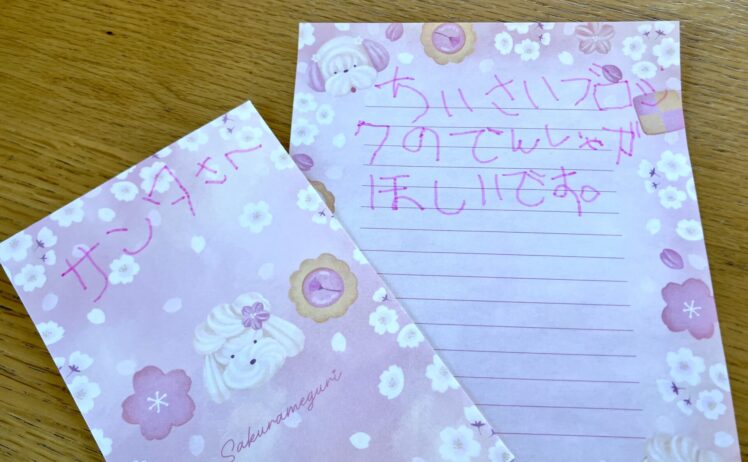 サンタさん
Sakurameguri
ちいさいブロッ
クのでんしゃが
ほしいです。